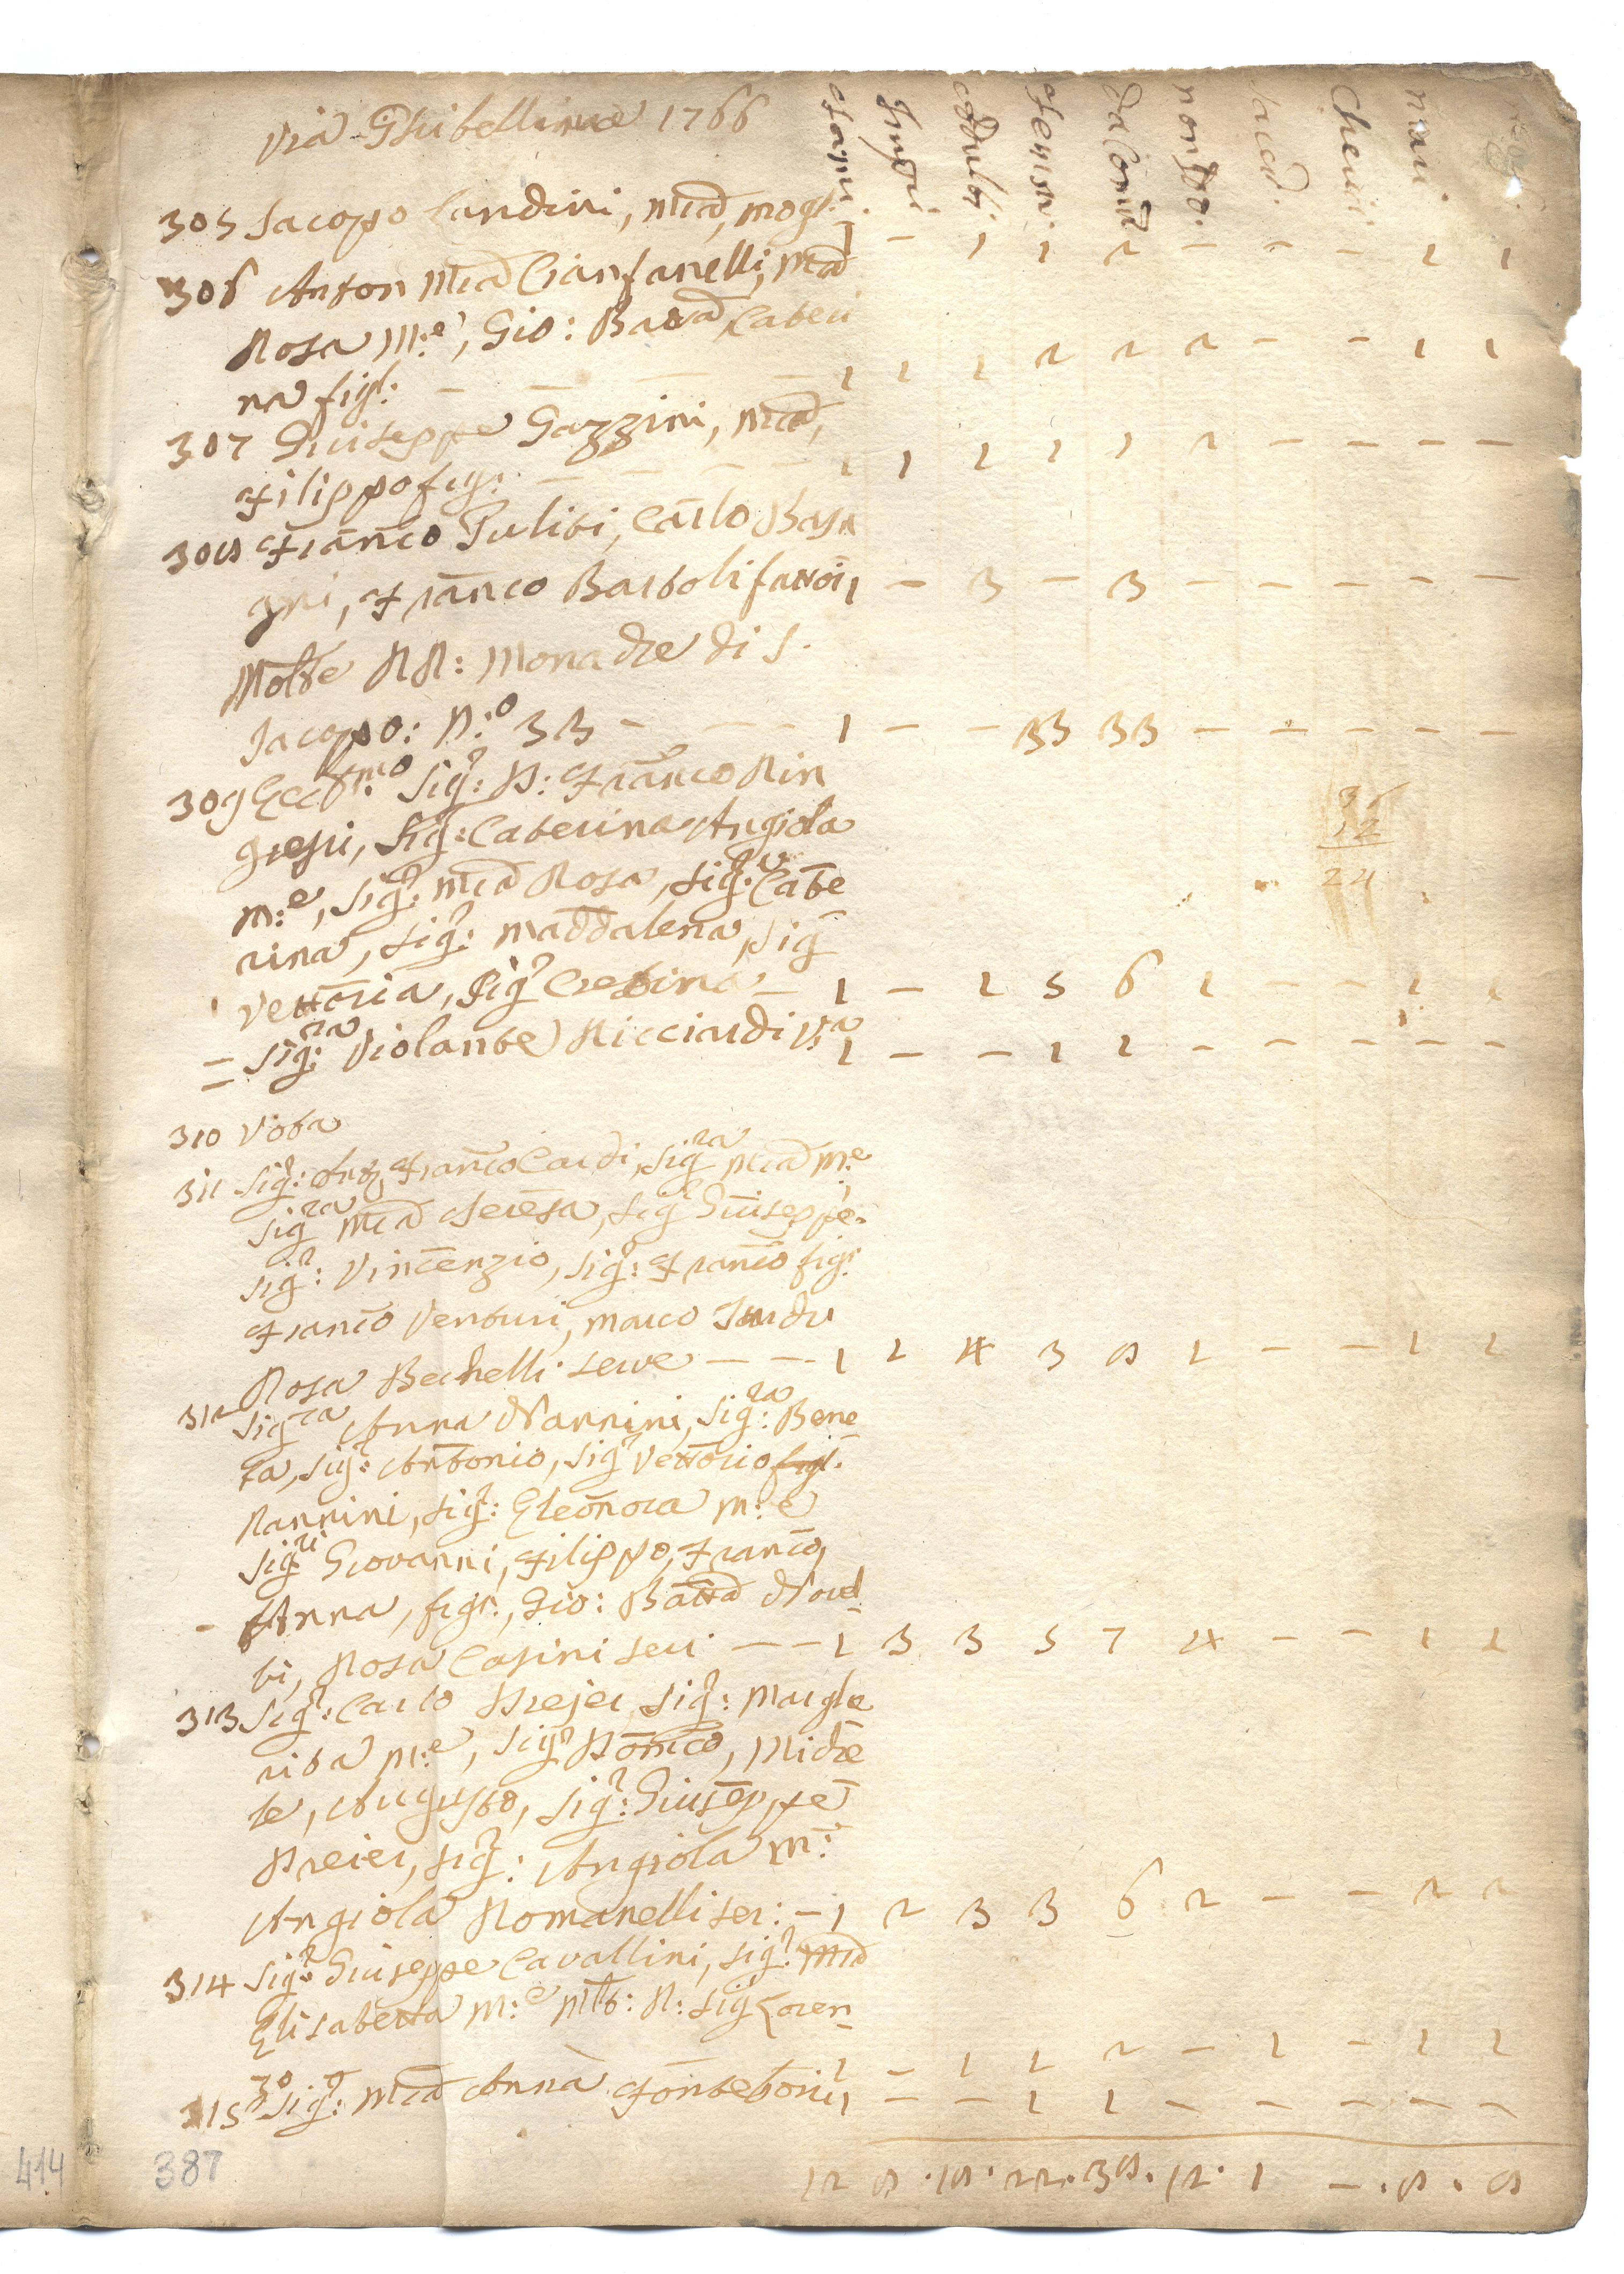 Via Ghibellina 1766
fami. Impu. Adulti. Femin. da Com. non Co. sacd. Cheric. mari. mog.
305 Jacopo Landini, Mia, mogl. 1 - 1 1 2 - - - 1 1
306 Anton Mia Cianfanelli, Mia
Rosa M:e, Gio: Batta Cateri
na figl. - - - - 1 1 1 2 2 2 - - 1 1
307 Giuseppe Gazzini, Mia,
Filippo figl: - - - - 1 1 1 1 1 1 - - - -
308 Franco Puliti, Carlo Basa
gni, Franco Bartoli fattori 1 - 3 - 3 - - - - -
Molte RR: Monache di S.
Jacopo: N:o 33 - - - - 1 - - 33 33 - - - - -
309 Ecc:mo Sig: D: Franco Rin
gressi, Sig: Caterina Angiola
M:e, Sig: Mia Rosa, Sig:ra Cate
rina, Sig: Maddalena, Sig
Vettoria, Sig Cretina - 1 - 1 5 6 1 - - 1 1
36
12
24
= Sig:ra Violante Ricciardi V:a 1 - - 1 1 - - - - -
310 Vota
311 Sig: Franco Cardi, Sig:ra Mia M:e
Sig:ra Mia Teresa, Sig Giuseppe.
Sig: Vincenzio, Sig: Franco figl.
Franco Venturi, Marco
Rosa Bechelli serve - - - 1 2 4 3 8 1 - - 1 1
312 Sig:ra Anna Nannini, Sig:ra Bene
ta, Sig: Antonio, Sig Vettorio figl.
Nannini, Sig: Eleonora M:e
Sig:ri Giovanni, Filippo, Franco,
- Anna, figl., Gio: Batta
ti, Rosa Casini seri - - 1 3 3 5 7 4 - - 1 1
313 Sig: Carlo Drejer Sig: Marghe
rita M:e, Sig Domco, Miche
le, Augusto, Sig: Giuseppe
Dreier, Sig: Angiola M:
Angiola Romanelli ser: - 1 2 3 3 6 2 - - 2 2
314 Sig: Giuseppe Cavallini, Sig: Mia
Elisabetta M:e Mto: R: Sig Loren
zo 1 - 1 1 2 - 1 - 1 1
315 Sig: Mia Anna Fonteboni 1 - - 1 1 - - - - -
12 8 . 18 . 22 . 38 . 12 . 1 - . 8 . 8
414
387